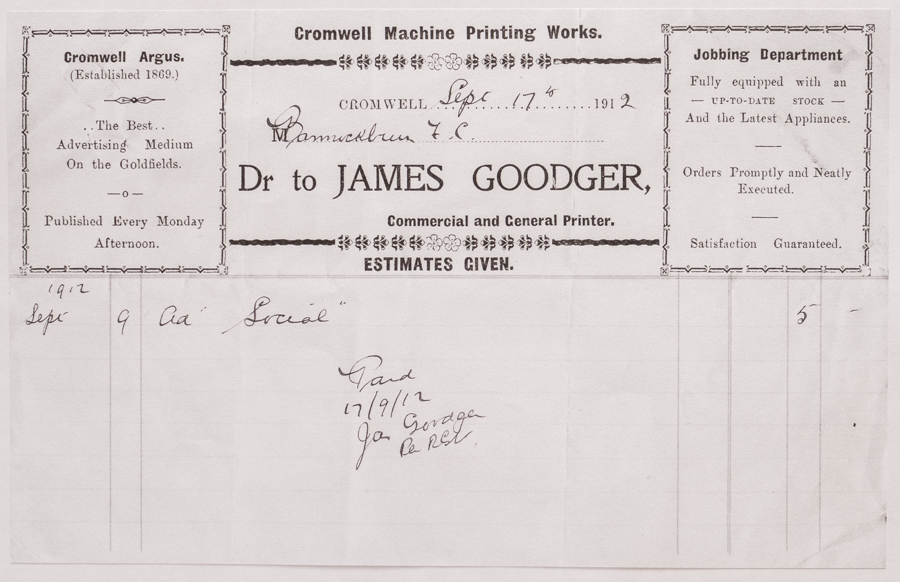 Cromwell Argus.
(Established 1869.)
..The Best..
Advertising Medium
On the Goldfields.
—o—
Published Every Monday
Afternoon.
Cromwell Machine Printing Works.
CROMWELL Sept 17th 1912
M Bannockburn F. C.
Dr to JAMES GOODGER,
Commercial and General Printer.
ESTIMATES GIVEN.
Jobbing Department
Fully equipped with an
— UP-TO-DATE STOCK —
And the Latest Appliances.
Orders Promptly and Neatly
Executed.
Satisfaction Guaranteed.
1912
Sept 9 Ad "Social" 5 -
Paid
17/9/12
Jas Goodger
Per